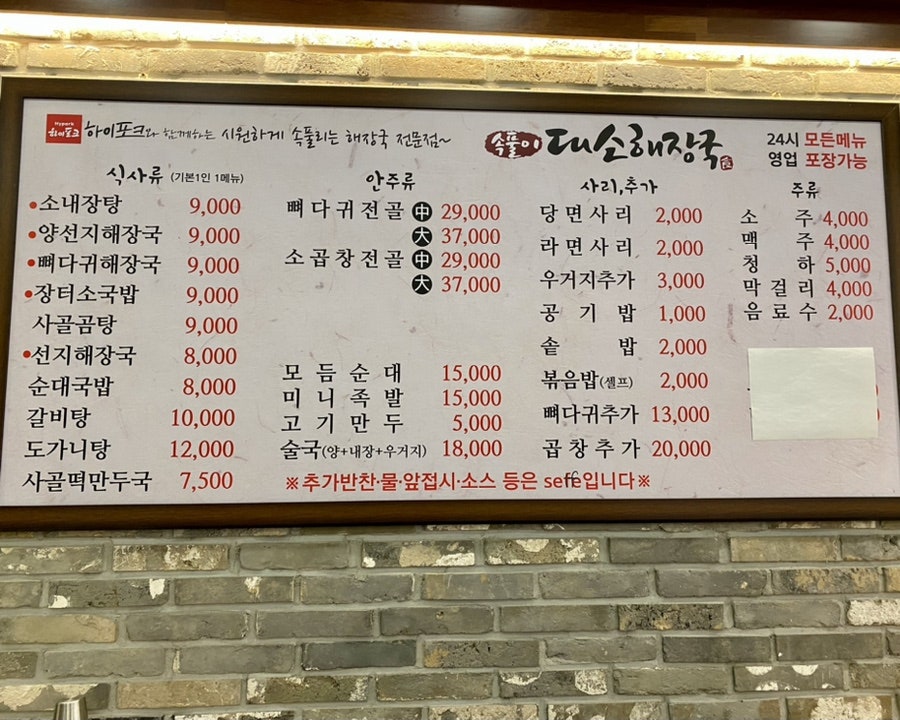 Hypork 하이포크
하이포크와 함께하는 시원하게 속풀리는 해장국 전문점~
속풀이 대소해장국
24시 모든메뉴
영업 포장가능
식사류 (기본1인 1메뉴)
•소내장탕 9,000
•양선지해장국 9,000
•뼈다귀해장국 9,000
•장터소국밥 9,000
사골곰탕 9,000
•선지해장국 8,000
순대국밥 8,000
갈비탕 10,000
도가니탕 12,000
사골떡만두국 7,500
안주류
뼈다귀전골 中 29,000
大 37,000
소곱창전골 中 29,000
大 37,000
모듬순대 15,000
미니족발 15,000
고기만두 5,000
술국(양+내장+우거지) 18,000
사리,추가
당면사리 2,000
라면사리 2,000
우거지추가 3,000
공기밥 1,000
솥밥 2,000
볶음밥(셀프) 2,000
뼈다귀추가 13,000
곱창추가 20,000
주류
소주 4,000
맥주 4,000
청하 5,000
막걸리 4,000
음료수 2,000
※추가반찬·물·앞접시·소스 등은 seffe입니다※